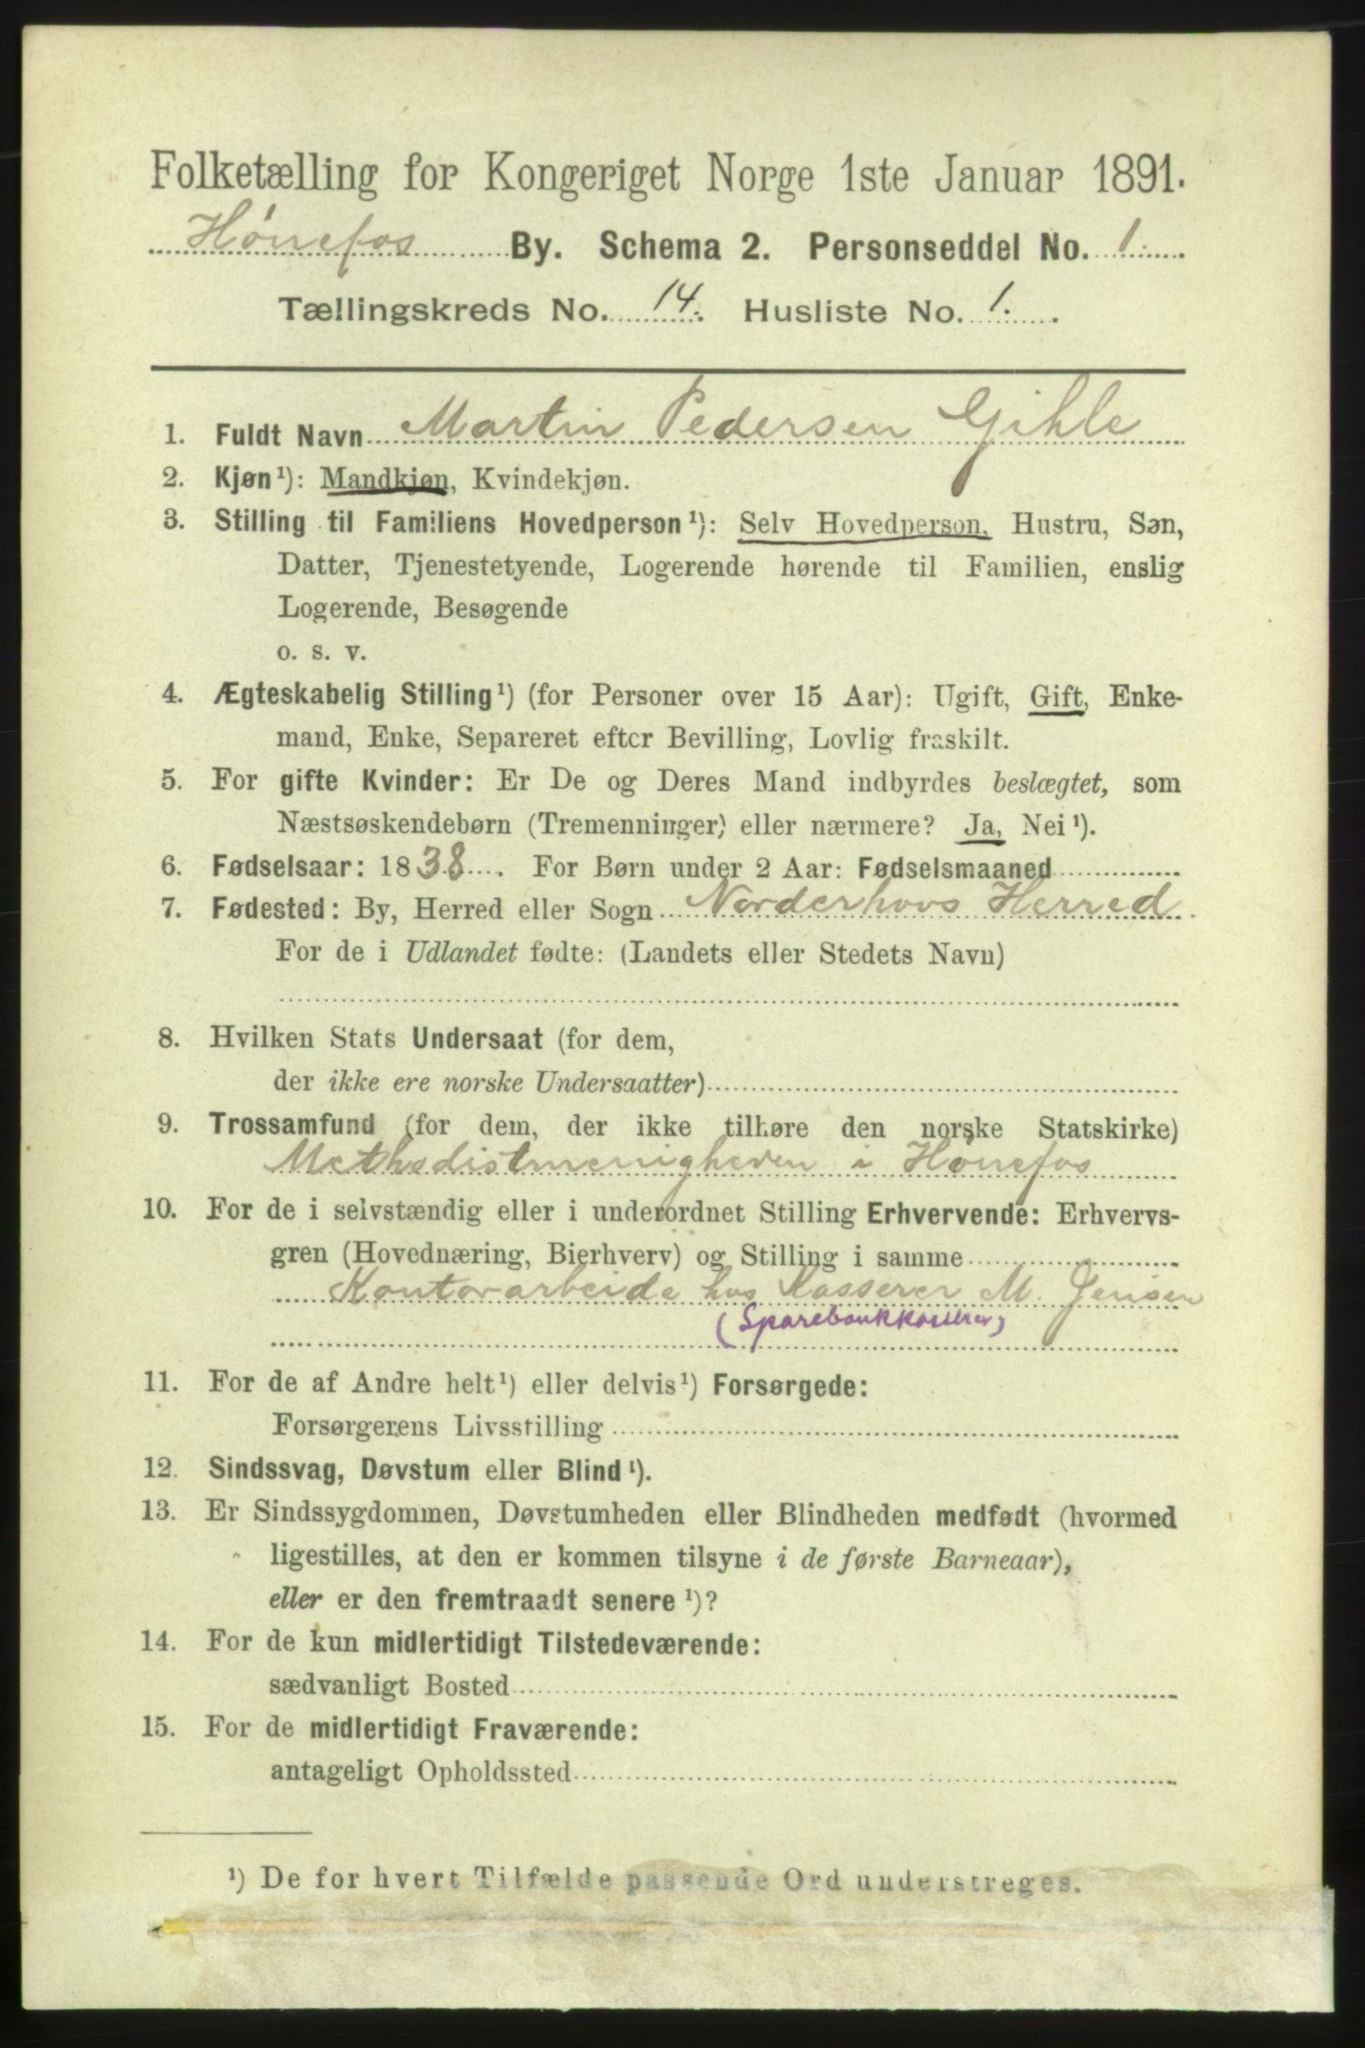 Folketælling for Kongeriget Norge 1ste Januar 1891.
Hønefos By. Schema 2. Personseddel No. 1.
Tællingskreds No. 14. Husliste No. 1.
1. Fuldt Navn Martin Pedersen Gihle
2. Kjøn¹): Mandkjøn, Kvindekjøn.
3. Stilling til Familiens Hovedperson¹): Selv Hovedperson, Hustru, Søn,
Datter, Tjenestetyende, Logerende hørende til Familien, enslig
Logerende, Besøgende
o. s. v.
4. Ægteskabelig Stilling¹) (for Personer over 15 Aar): Ugift, Gift, Enke-
mand, Enke, Separeret efter Bevilling, Lovlig fraskilt.
5. For gifte Kvinder: Er De og Deres Mand indbyrdes beslægtet, som
Næstsøskendebørn (Tremenninger) eller nærmere? Ja, Nei¹).
6. Fødselsaar: 1838. For Børn under 2 Aar: Fødselsmaaned
7. Fødested: By, Herred eller Sogn Norderhovs Herred.
For de i Udlandet fødte: (Landets eller Stedets Navn)
8. Hvilken Stats Undersaat (for dem,
der ikke ere norske Undersaatter)
9. Trossamfund (for dem, der ikke tilhøre den norske Statskirke)
Methodistmenigheden i Hønefos
10. For de i selvstændig eller i underordnet Stilling Erhvervende: Erhvervs-
gren (Hovednæring, Bierhverv) og Stilling i samme
Kontorarbeide hos Kasserer M. Jensen
(Sparebankkasserer)
11. For de af Andre helt¹) eller delvis¹) Forsørgede:
Forsørgerens Livsstilling
12. Sindssvag, Døvstum eller Blind¹).
13. Er Sindssygdommen, Døvstumheden eller Blindheden medfødt (hvormed
ligestilles, at den er kommen tilsyne i de første Barneaar),
eller er den fremtraadt senere¹)?
14. For de kun midlertidigt Tilstedeværende:
sædvanligt Bosted
15. For de midlertidigt Fraværende:
antageligt Opholdssted
¹) De for hvert Tilfælde passende Ord understreges.